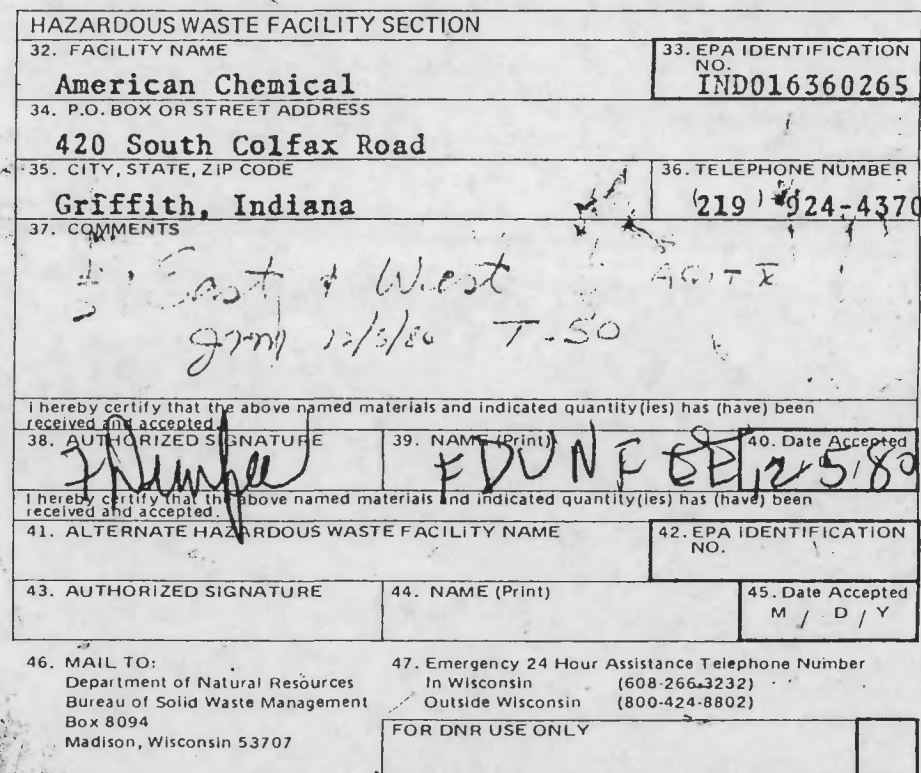 HAZARDOUS WASTE FACILITY SECTION
32. FACILITY NAME
American Chemical
33. EPA IDENTIFICATION NO.
IND016360265
34. P.O. BOX OR STREET ADDRESS
420 South Colfax Road
35. CITY, STATE, ZIP CODE
Griffith, Indiana
36. TELEPHONE NUMBER
(219) 924-4370
37. COMMENTS
East & West
12/5/80 T-50
I hereby certify that the above named materials and indicated quantity(ies) has (have) been
received and accepted.
38. AUTHORIZED SIGNATURE
39. NAME (Print)
F DUNFEE
40. Date Accepted
12-5-80
I hereby certify that the above named materials and indicated quantity(ies) has (have) been
received and accepted.
41. ALTERNATE HAZARDOUS WASTE FACILITY NAME
42. EPA IDENTIFICATION NO.
43. AUTHORIZED SIGNATURE
44. NAME (Print)
45. Date Accepted
M / D / Y
46. MAIL TO:
Department of Natural Resources
Bureau of Solid Waste Management
Box 8094
Madison, Wisconsin 53707
47. Emergency 24 Hour Assistance Telephone Number
In Wisconsin (608-266-3232)
Outside Wisconsin (800-424-8802)
FOR DNR USE ONLY